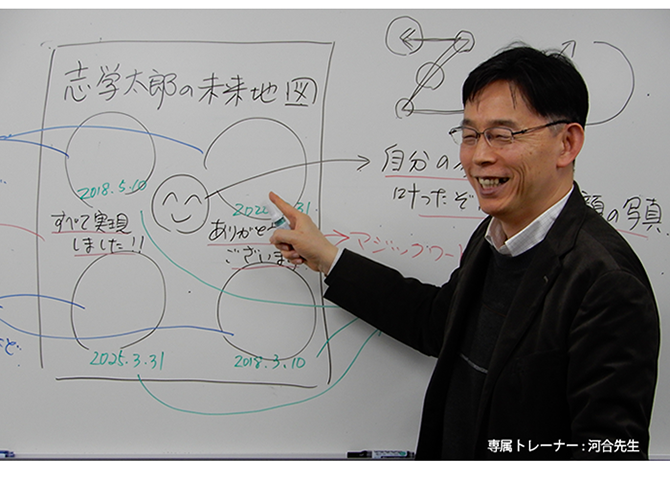 志学太郎の未来地図
2018.5.10
31.
すべて実現
しました!!
ありがと
ございま
自分の
けったぞ
顔の写真
マジックワー
2025.3.31
2018.3.10
専属トレーナー：河合先生